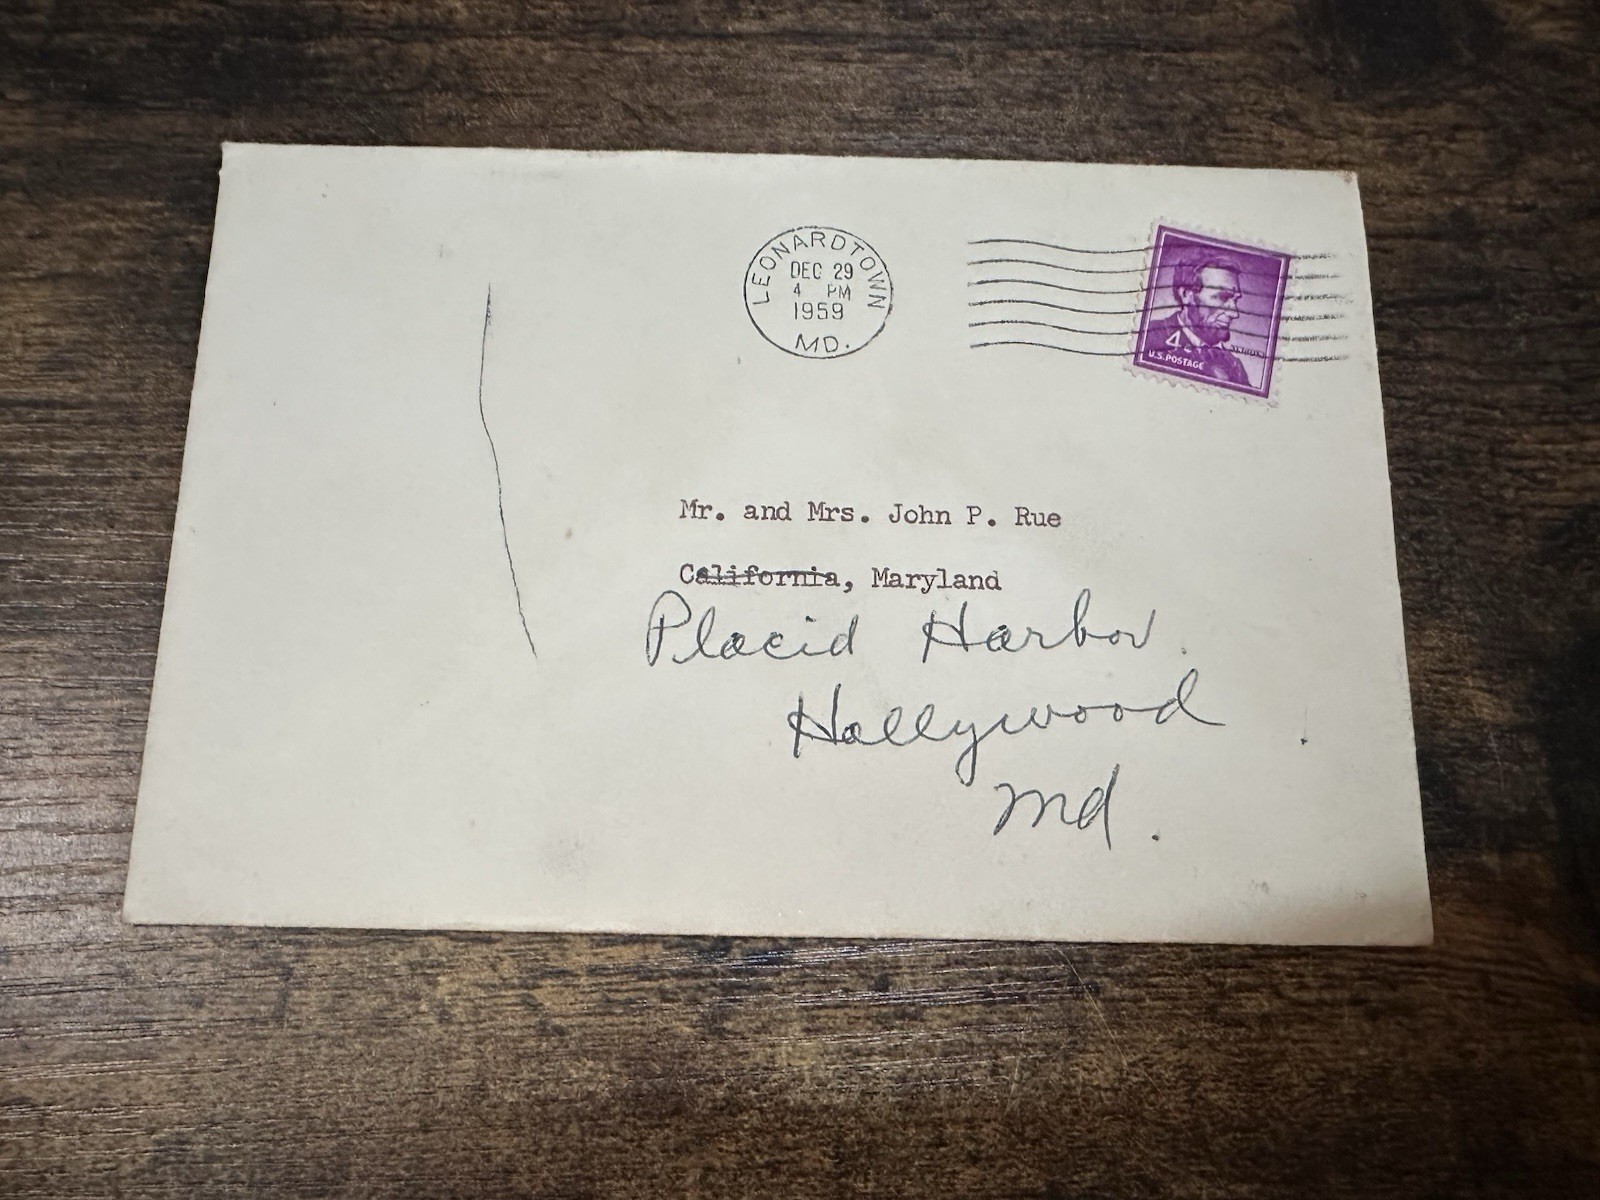 LEONARDTOWN
DEC 29
4 PM
1959
MD.
4¢
U.S. POSTAGE
Mr. and Mrs. John P. Rue
California, Maryland
Placid Harbor.
Hollywood
Md.